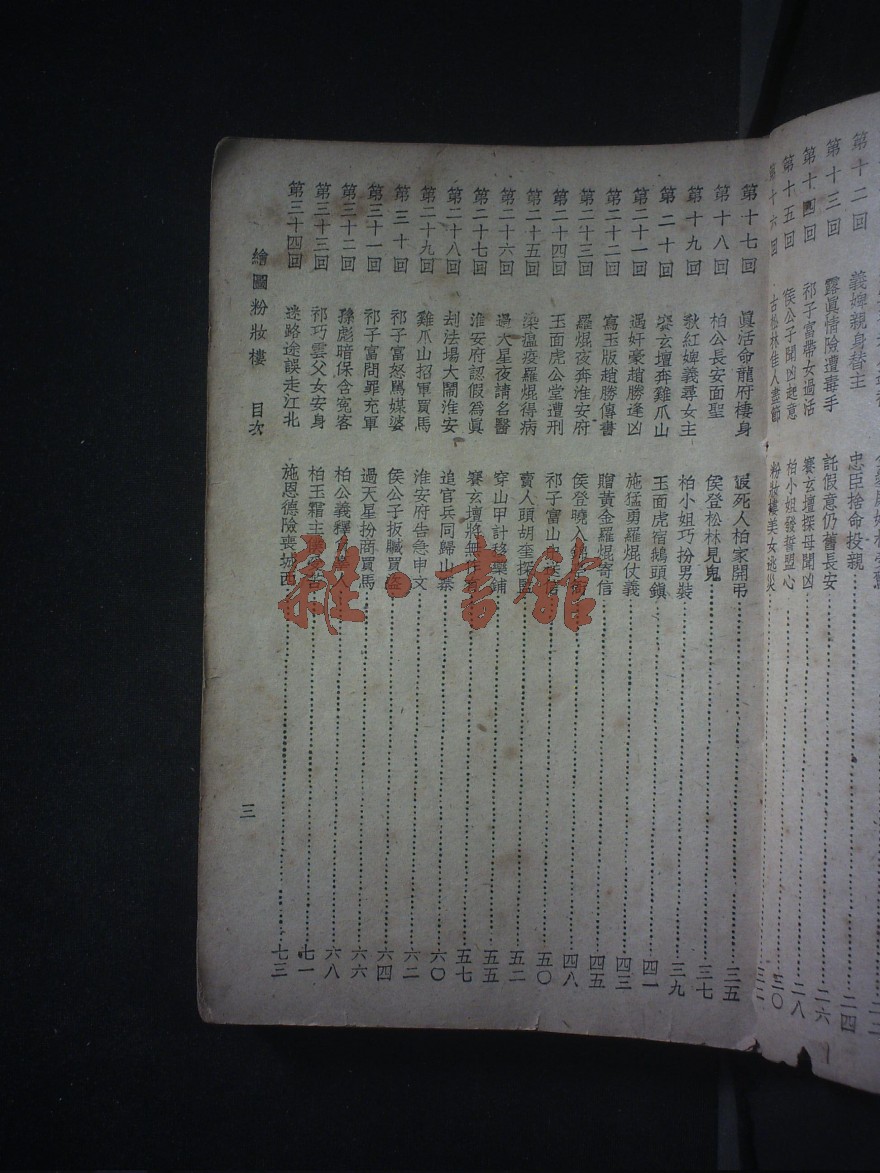 第十二回 義婢親身替主 忠臣捨命投親 二四
第十三回 露眞情險遭毒手 託假意仍舊長安 二六
第十四回 祁子富帶女過活 賽玄壇探母聞凶 二八
第十五回 侯公子聞凶起意 柏小姐發誓盟心 三〇
第十六回 古松林佳人盡節 粉妝樓美女逃災 三二
第十七回 眞活命龍府棲身 假死人柏家開弔 三五
第十八回 柏公長安面聖 侯登松林見鬼 三七
第十九回 秋紅婢義尋女主 柏小姐巧扮男裝 三九
第二十回 賽玄壇奔雞爪山 玉面虎宿鵝頭鎭 四一
第二十一回 遇奸豪趙勝逢凶 施猛勇羅焜仗義 四三
第二十二回 寫玉版趙勝傳書 贈黃金羅焜寄信 四五
第二十三回 羅焜夜奔淮安府 侯登曉入 四八
第二十四回 玉面虎公堂遭刑 祁子富山 五〇
第二十五回 染瘟疫羅焜得病 賣人頭胡奎探監 五二
第二十六回 過天星夜請名醫 穿山甲計移藥鋪 五五
第二十七回 淮安府認假爲眞 賽玄壇將無作有 五七
第二十八回 刦法場大鬧淮安 追官兵同歸山寨 六〇
第二十九回 雞爪山招軍買馬 淮安府告急申文 六二
第三十回 祁子富怒罵媒婆 侯公子扳贓買盜 六四
第三十一回 祁子富問罪充軍 過天星扮商買馬 六六
第三十二回 孫彪暗保含寃客 柏公義釋 人 六八
第三十三回 祁巧雲父女安身 柏玉霜主僕受苦 七一
第三十四回 迷路途誤走江北 施恩德險喪城西 七三
繪圖粉妝樓 目次 三
雜·書館